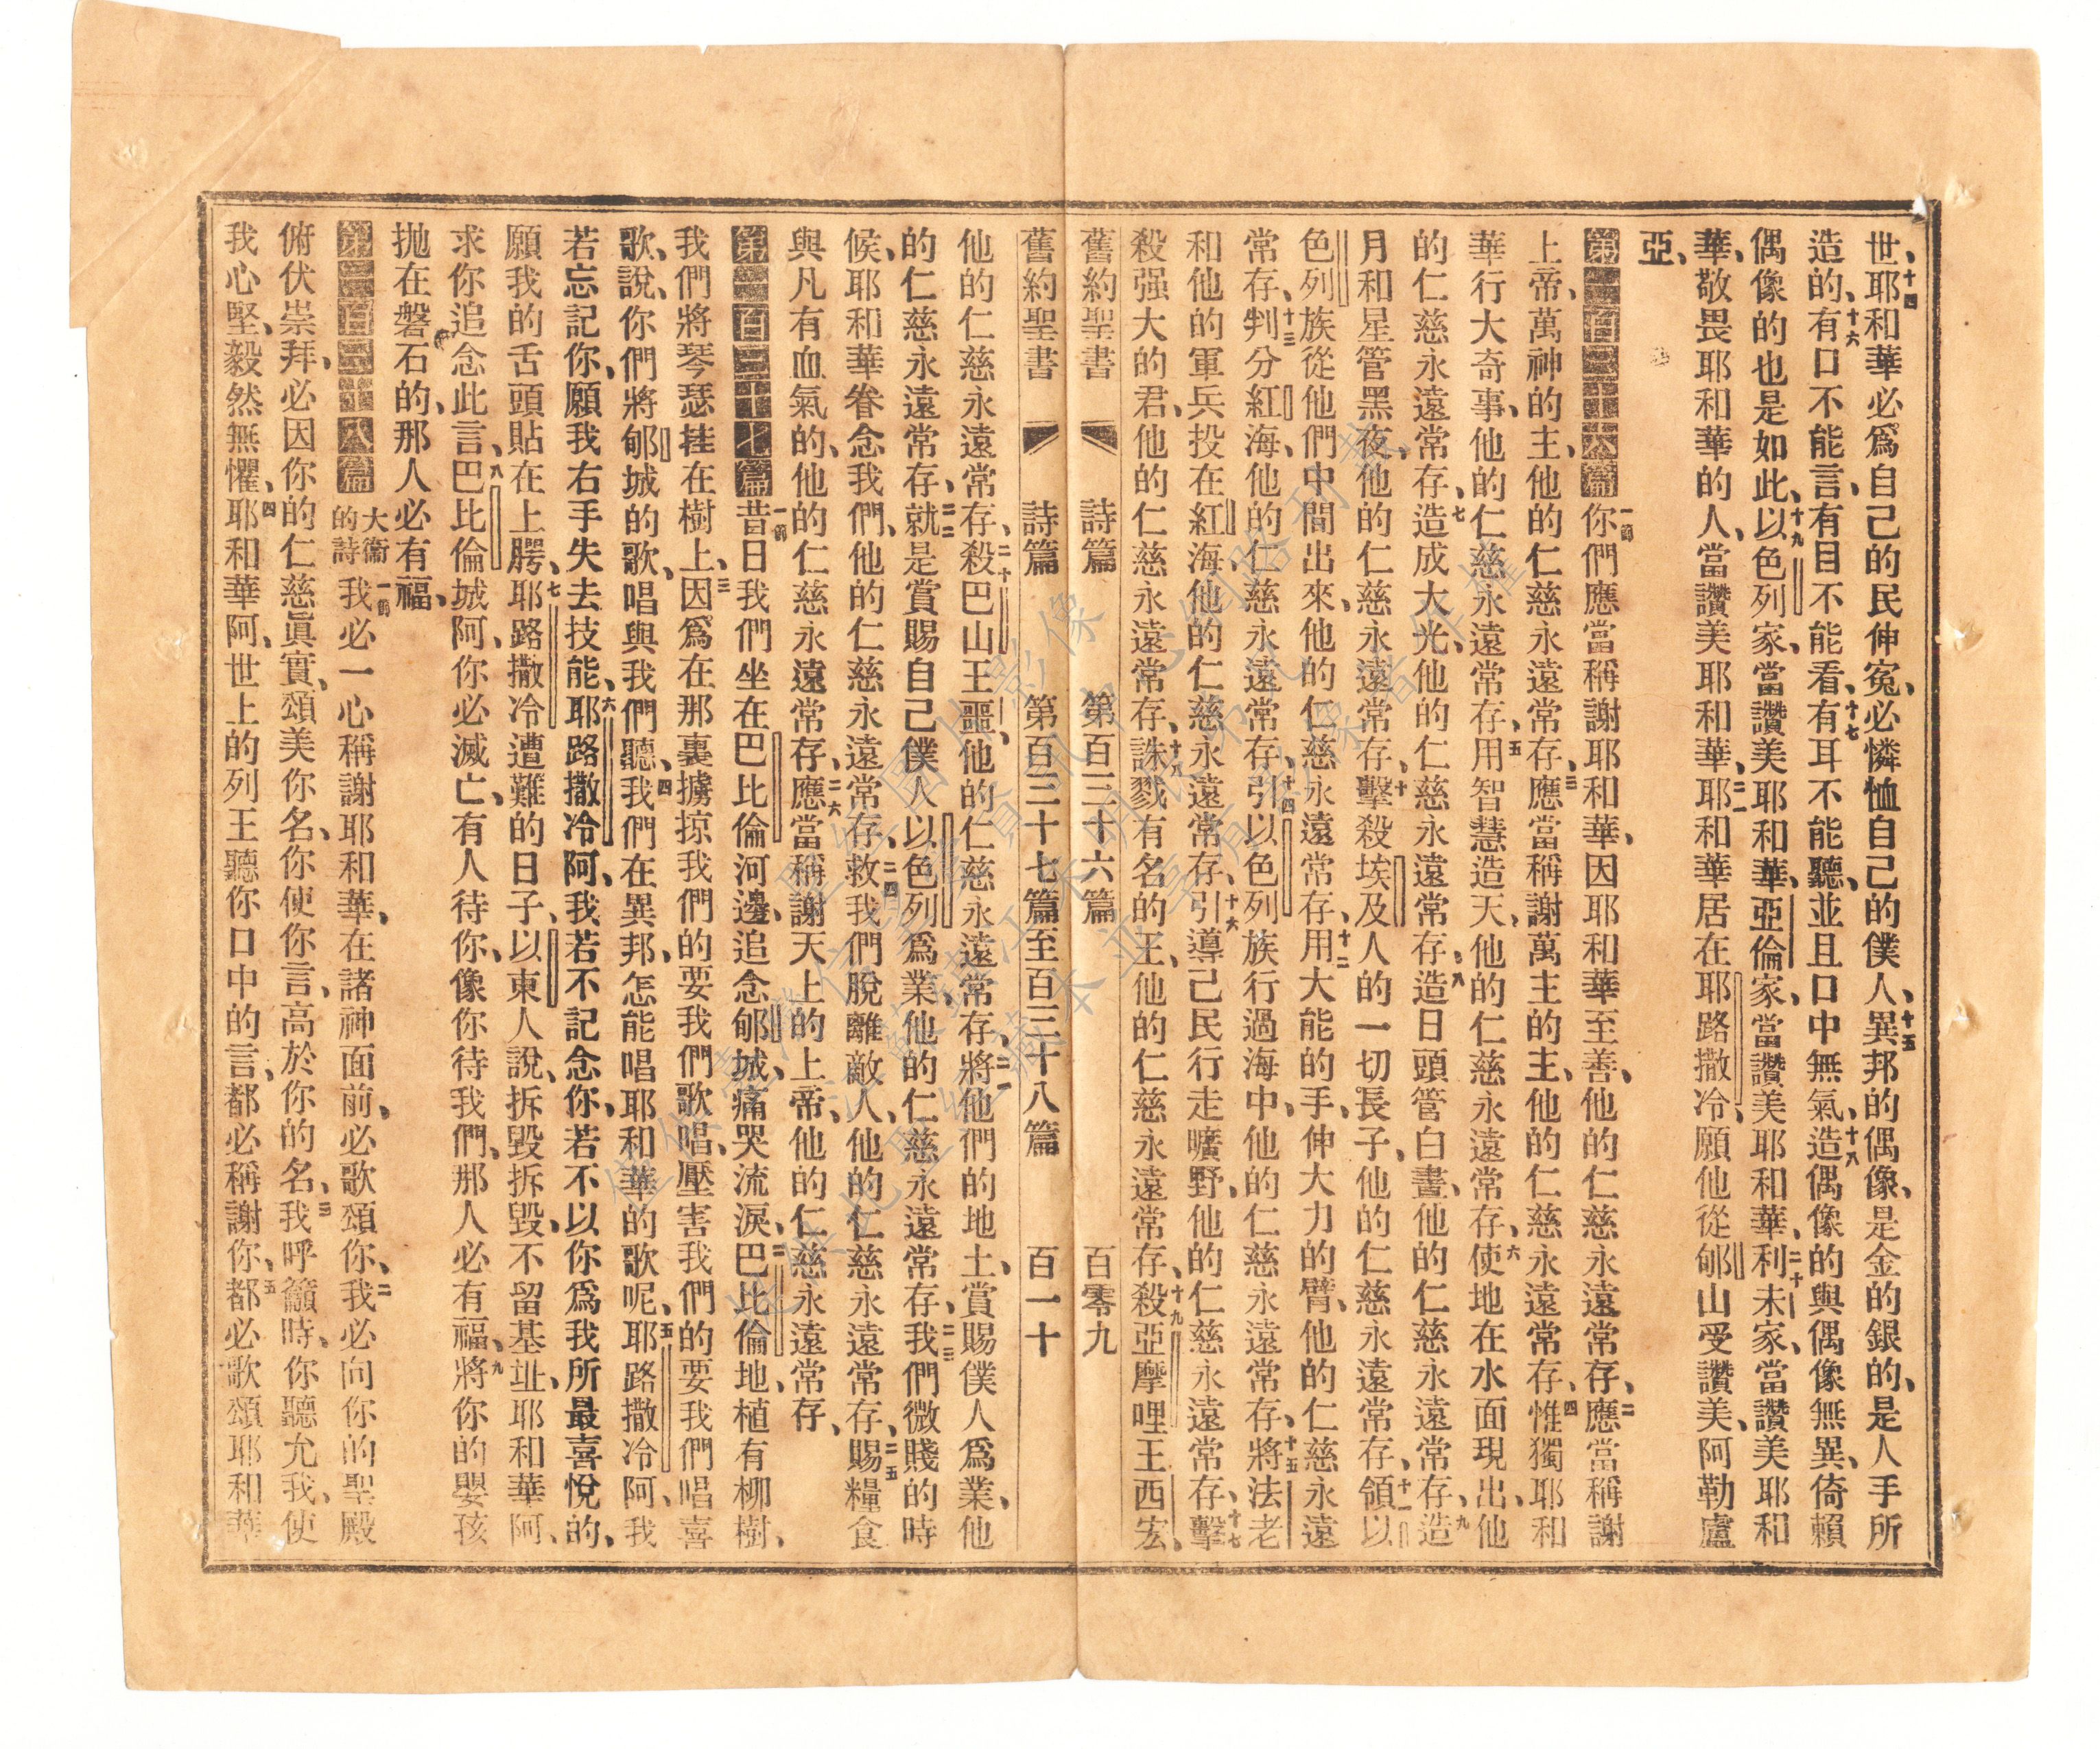 世、十四耶和華必爲自己的民伸冤、必憐恤自己的僕人、十五異邦的偶像、是金的銀的、是人手所
造的、十六有口不能言、有目不能看、十七有耳不能聽、並且口中無氣、十八造偶像的與偶像無異、倚賴
偶像的也是如此、十九以色列家、當讚美耶和華、亞倫家、當讚美耶和華、二十利未家、當讚美耶和
華、敬畏耶和華的人、當讚美耶和華、二一耶和華居在耶路撒冷、願他從郇山受讚美、阿勒盧
亞、
第一百三十六篇一節你們應當稱謝耶和華、因耶和華至善、他的仁慈永遠常存、二應當稱謝
上帝、萬神的主、他的仁慈永遠常存、三應當稱謝萬主的主、他的仁慈永遠常存、四惟獨耶和
華行大奇事、他的仁慈永遠常存、五用智慧造天、他的仁慈永遠常存、六使地在水面現出、他
的仁慈永遠常存、七造成大光、他的仁慈永遠常存、八造日頭管白晝、他的仁慈永遠常存、九造
月和星管黑夜、他的仁慈永遠常存、十擊殺埃及人的一切長子、他的仁慈永遠常存、十一領以
色列族從他們中間出來、他的仁慈永遠常存、十二用大能的手、伸大力的臂、他的仁慈永遠
常存、十三判分紅海、他的仁慈永遠常存、十四引以色列族行過海中、他的仁慈永遠常存、十五將法老
和他的軍兵投在紅海、他的仁慈永遠常存、十六引導己民行走曠野、他的仁慈永遠常存、十七擊
殺强大的君、他的仁慈永遠常存、十八誅戮有名的王、他的仁慈永遠常存、十九殺亞摩哩王西宏、
舊約聖書 詩篇 第百三十六篇 百零九
舊約聖書 詩篇 第百三十七篇至百三十八篇 百一十
他的仁慈永遠常存、二十殺巴山王噩、他的仁慈永遠常存、二一將他們的地土、賞賜僕人爲業、他
的仁慈永遠常存、二二就是賞賜自己僕人以色列爲業、他的仁慈永遠常存、二三我們微賤的時
候、耶和華眷念我們、他的仁慈永遠常存、二四救我們脫離敵人、他的仁慈永遠常存、二五賜糧食
與凡有血氣的、他的仁慈永遠常存、二六應當稱謝天上的上帝、他的仁慈永遠常存、
第一百三十七篇一節昔日我們坐在巴比倫河邊、追念郇城、痛哭流淚、二巴比倫地、植有柳樹、
我們將琴瑟挂在樹上、三因爲在那裏擄掠我們的要我們歌唱、壓害我們的要我們唱喜
歌、說、你們將郇城的歌、唱與我們聽、四我們在異邦、怎能唱耶和華的歌呢、五耶路撒冷阿、我
若忘記你、願我右手失去技能、六耶路撒冷阿、我若不記念你、若不以你爲我所最喜悅的、
願我的舌頭貼在上腭、七耶路撒冷遭難的日子、以東人說、拆毀拆毀、不留基址、耶和華阿、
求你追念此言、八巴比倫城阿、你必滅亡、有人待你、像你待我們、那人必有福、九將你的嬰孩
抛在磐石的、那人必有福、
第一百三十八篇大衞的詩一節我必一心稱謝耶和華、在諸神面前、必歌頌你、二我必向你的聖殿
俯伏崇拜、必因你的仁慈眞實、頌美你名、你使你言、高於你的名、三我呼籲時、你聽允我、使
我心堅、毅然無懼、四耶和華阿、世上的列王聽你口中的言、都必稱謝你、五都必歌頌耶和華